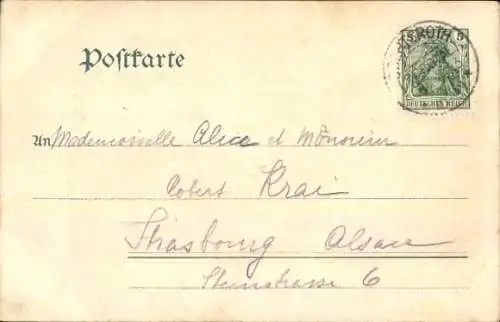 Postkarte
5
DEUTSCHES REICH
An Mademoiselle Alice et Monsieur
Robert Krai
Strasbourg Alsace
Steinstrasse 6